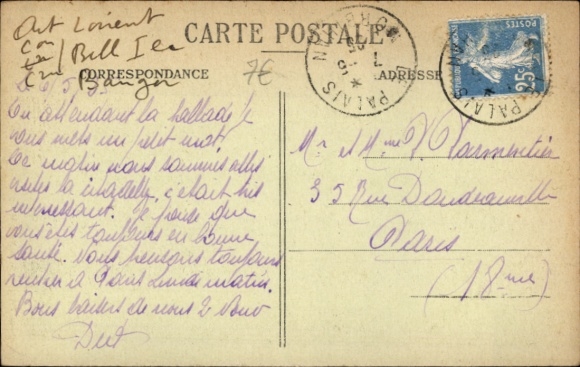 Art Lorient
Con
Bell Ile
Bangor
CARTE POSTALE
CORRESPONDANCE
ADRESSE
7€
PALAIS
POSTES
25
PALAIS
En attendant la ballade je
vous mets un petit mot.
Ce matin nous sommes allés
visiter la citadelle, c'était très
intéressant. Je pense que
vous êtes toujours en bonne
santé. Vous pensons toujours
rentrer à Paris Lundi matin.
Bons baisers de nous 2
Mr et Mme V. Parmentier
35 Rue Doudeauville
Paris
(18eme)